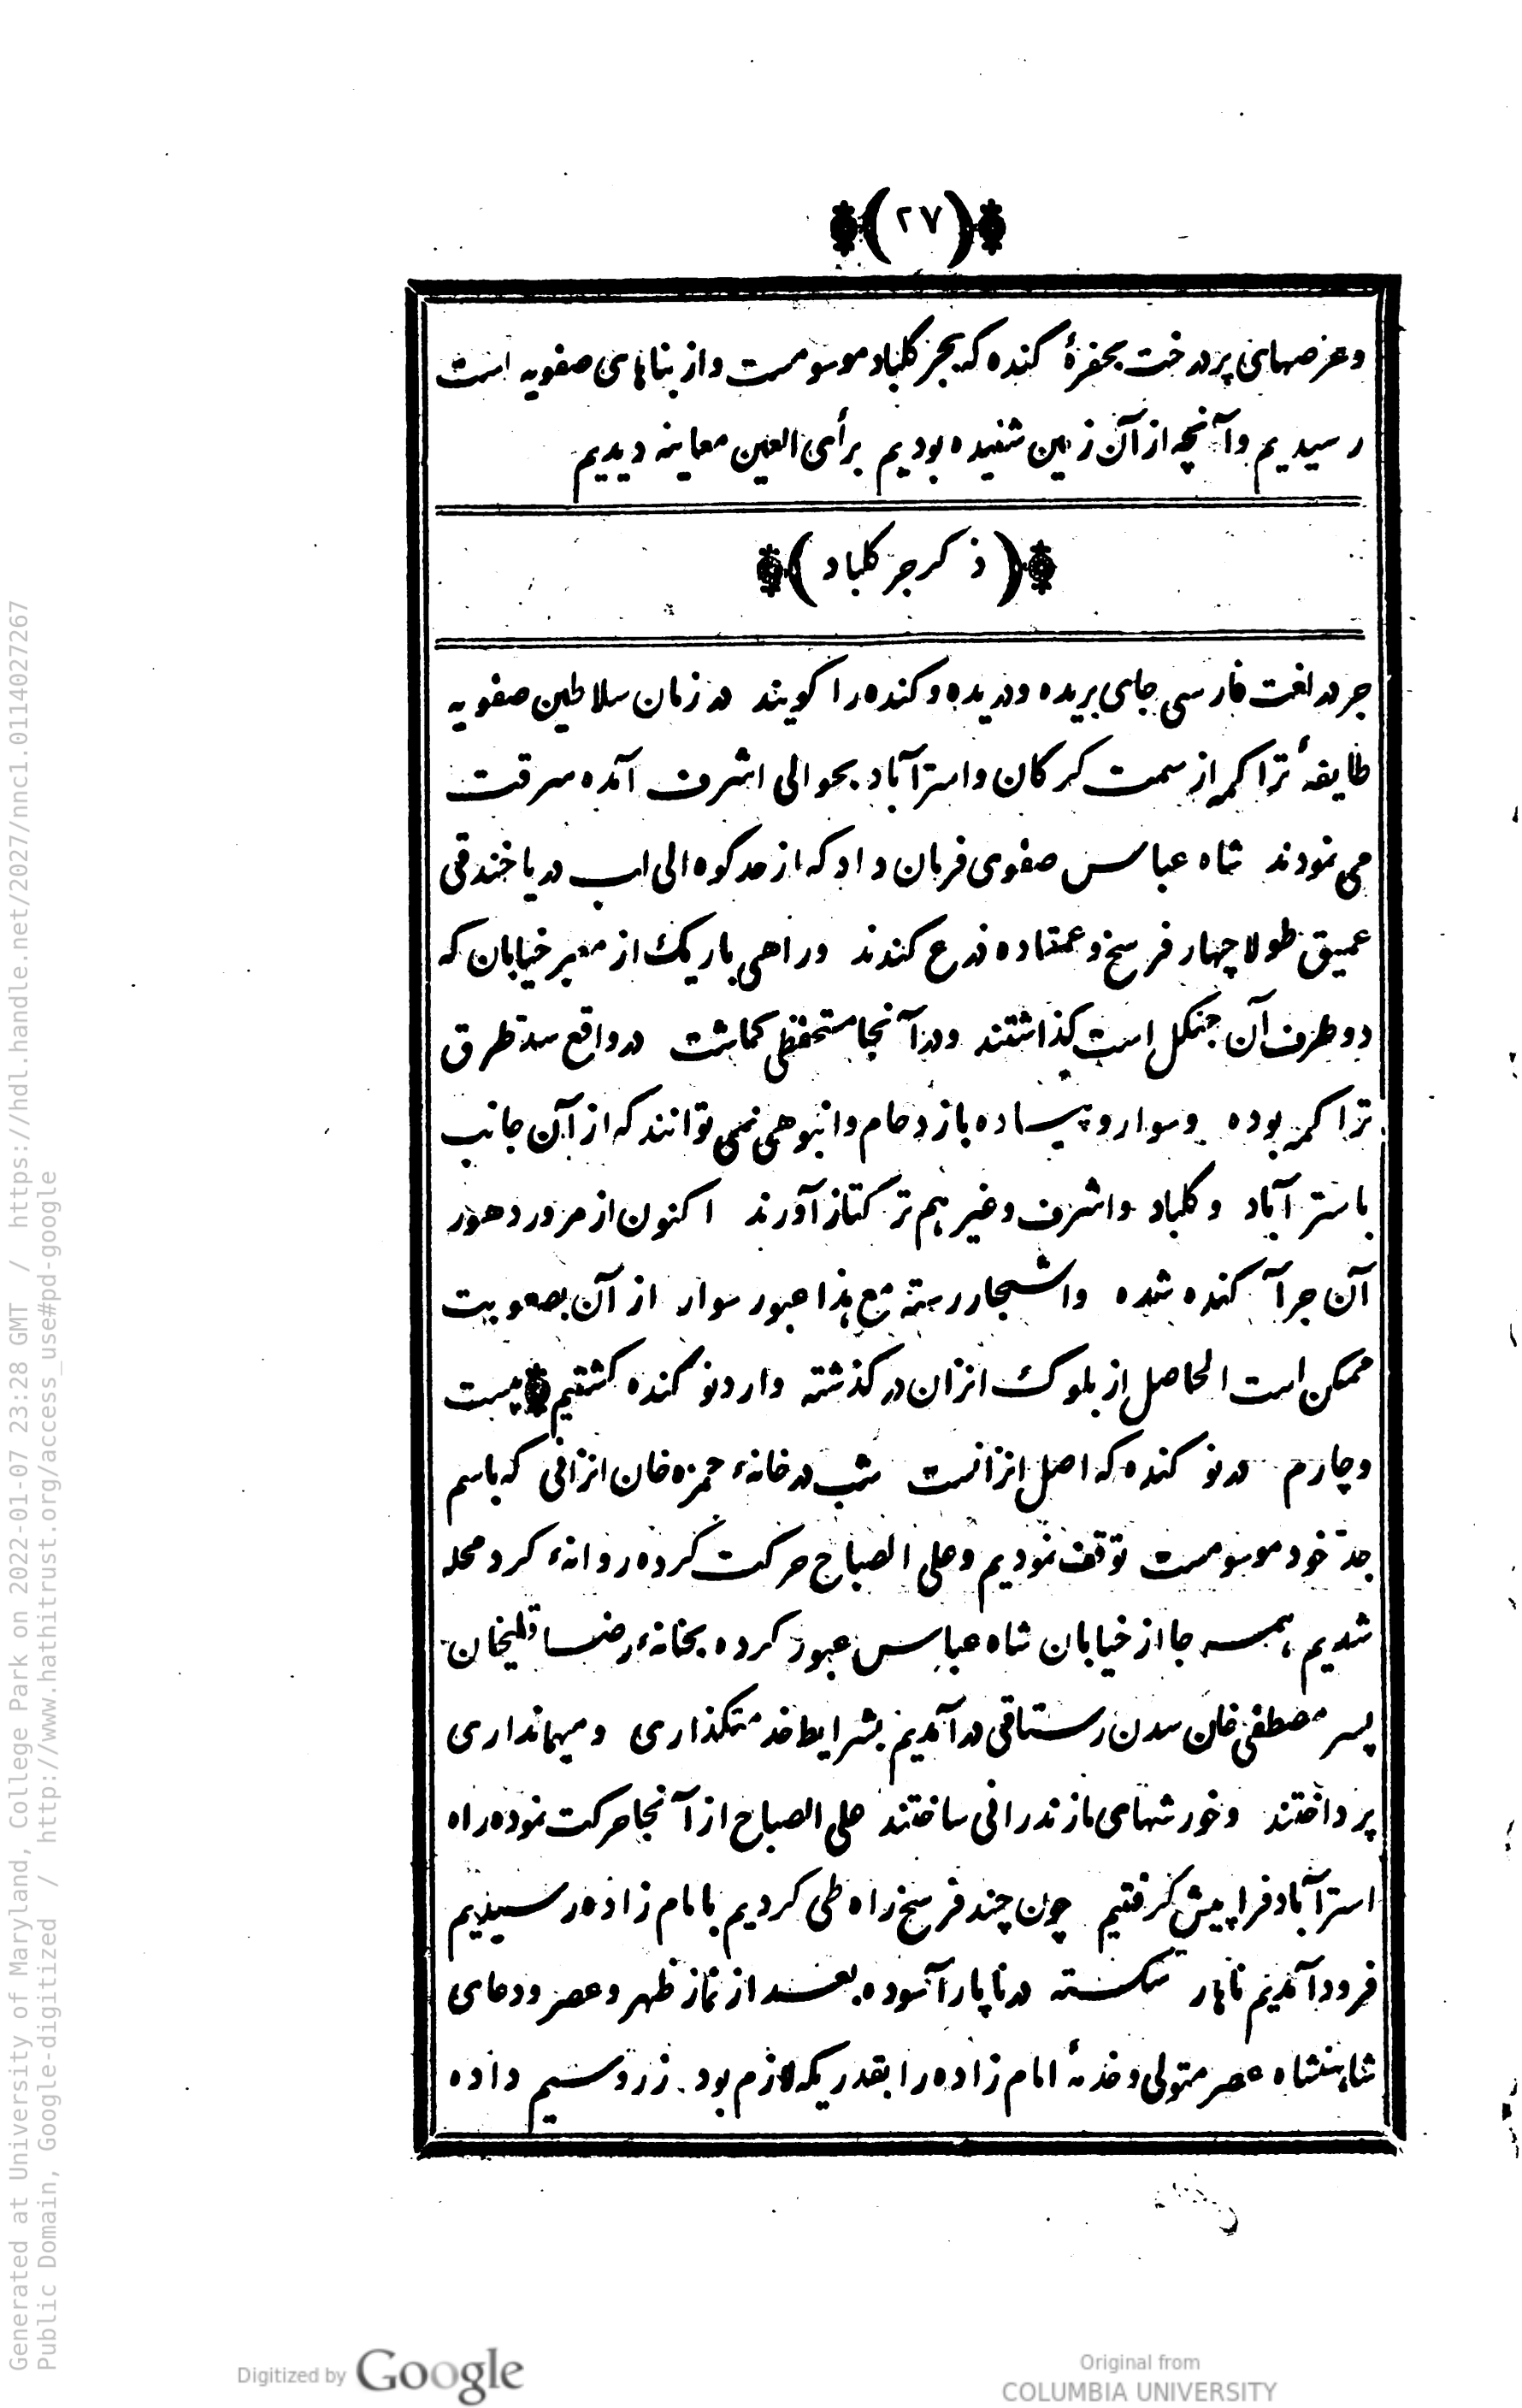 (۲۷)
وعرصهای پردرخت بحفرهٔ کنده که بجر کلباد موسومست واز بناهای صفویه است
رسیدیم وآنچه از آن زمین شنیده بودیم برأی العین معاینه دیدیم
(ذکر جر کلباد)
جر در لغت فارسی جای بریده ودریده وکنده را کویند در زمان سلاطین صفویه
طایفهٔ تراکمه از سمت کرکان واسترآباد بحوالی اشرف آمده سرقت
می نمودند شاه عباس صفوی فرمان داد که از حد کوه الی لب دریا خندقی
عمیق طولا چهار فرسخ وعمقا ده ذرع کندند وراهی باریک از معبر خیابان که
دو طرف آن جنکل است کذاشتند ودر آنجا مستحفظی کماشت در واقع سدّ طرق
تراکمه بوده وسوار وپیاده بازدحام وانبوهی نمی توانند که از آن جانب
باسترآباد وکلباد واشرف وغیرهم ترکتاز آورند اکنون از مرور دهور
آن جر آکنده شده واشجار رسته مع هذا عبور سوار از آن بصعوبت
ممکن است الحاصل از بلوک انزان در کذشته وارد نوکنده کشتیم بیست
وچارم در نوکنده که اصل انزانست شب در خانهء حمزه خان انزانی که باسم
جدّ خود موسومست توقف نمودیم وعلی الصباح حرکت کرده روانهء کرد محله
شدیم همه جا از خیابان شاه عباس عبور کرده بخانهء رضا قلیخان
پسر مصطفی خان سدن رستاقی در آمدیم بشرایط خدمتکذاری ومیهمانداری
پرداختند وخورشهای مازندرانی ساختند علی الصباح از آنجا حرکت نموده راه
استرآباد فراپیش کرفتیم چون چند فرسخ راه طی کردیم بامام زاده رسیدیم
فرود آمدیم ناهار شکسته در ناپار آسوده بعد از نماز ظهر وعصر ودعای
شاهنشاه عصر متولی وخدمهٔ امام زاده را بقدریکه لازم بود زر وسیم داده
Generated at University of Maryland, College Park on 2022-01-07 23:28 GMT / https://hdl.handle.net/2027/nnc1.0114027267
Public Domain, Google-digitized / http://www.hathitrust.org/access_use#pd-google
Digitized by Google
Original from
COLUMBIA UNIVERSITY